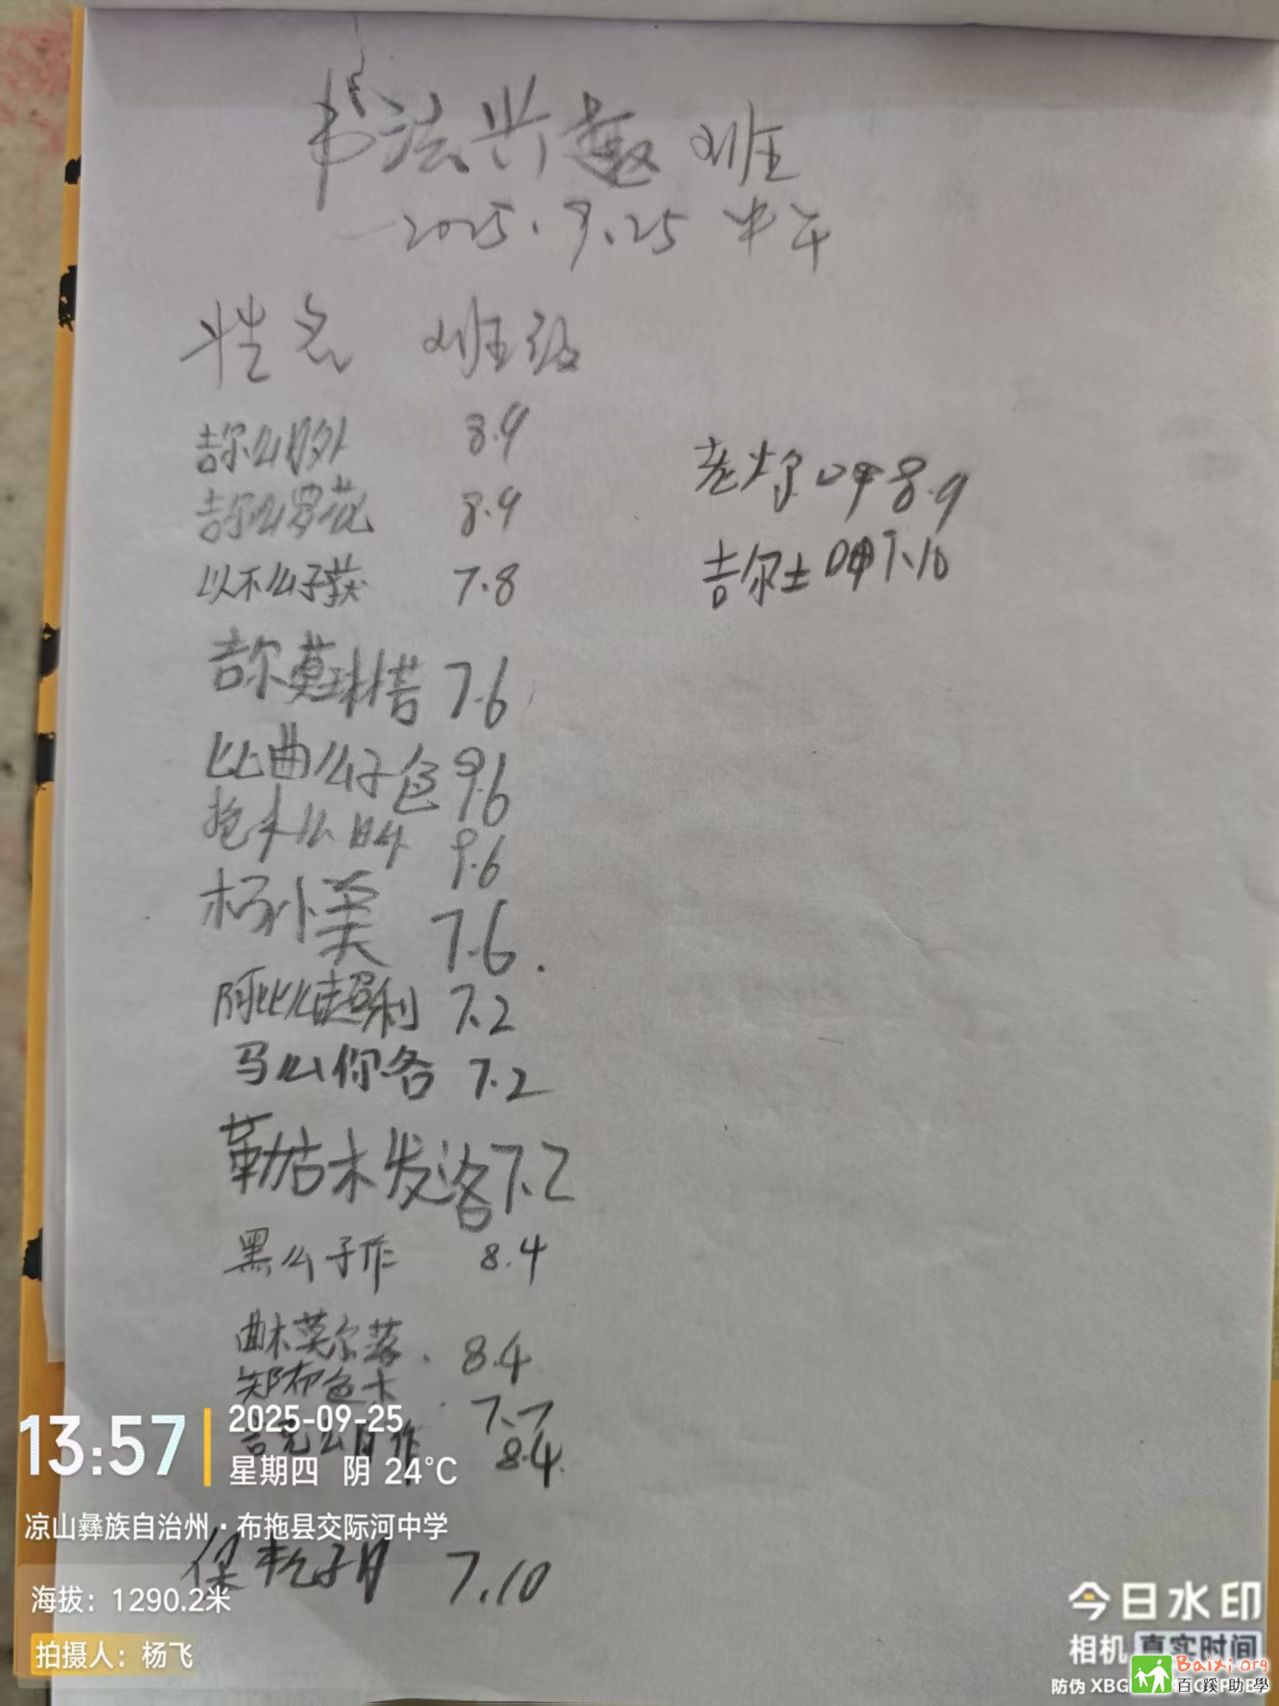 书法兴趣班
2025.9.25 中午
姓名 班级
吉尔么日外 8.9
吉尔么罗花 8.9
以不么子获 7.8
吉尔莫 7.6
比曲么子色 9.6
么 9.6
杨小美 7.6.
阿比么超利 7.2
马么你各 7.2
勒古木发洛 7.2
黑么子作 8.4
曲木莫尔落. 8.4
郑布色木 7.7
吉克么日作 8.4.
保 子日 7.10
8.9
吉尔土呷 7.10
13:57
2025-09-25
星期四 阴 24°C
凉山彝族自治州·布拖县交际河中学
海拔：1290.2米
拍摄人：杨飞
今日水印
相机 真实时间
防伪 XBG
Baixi.org
百蹊助學